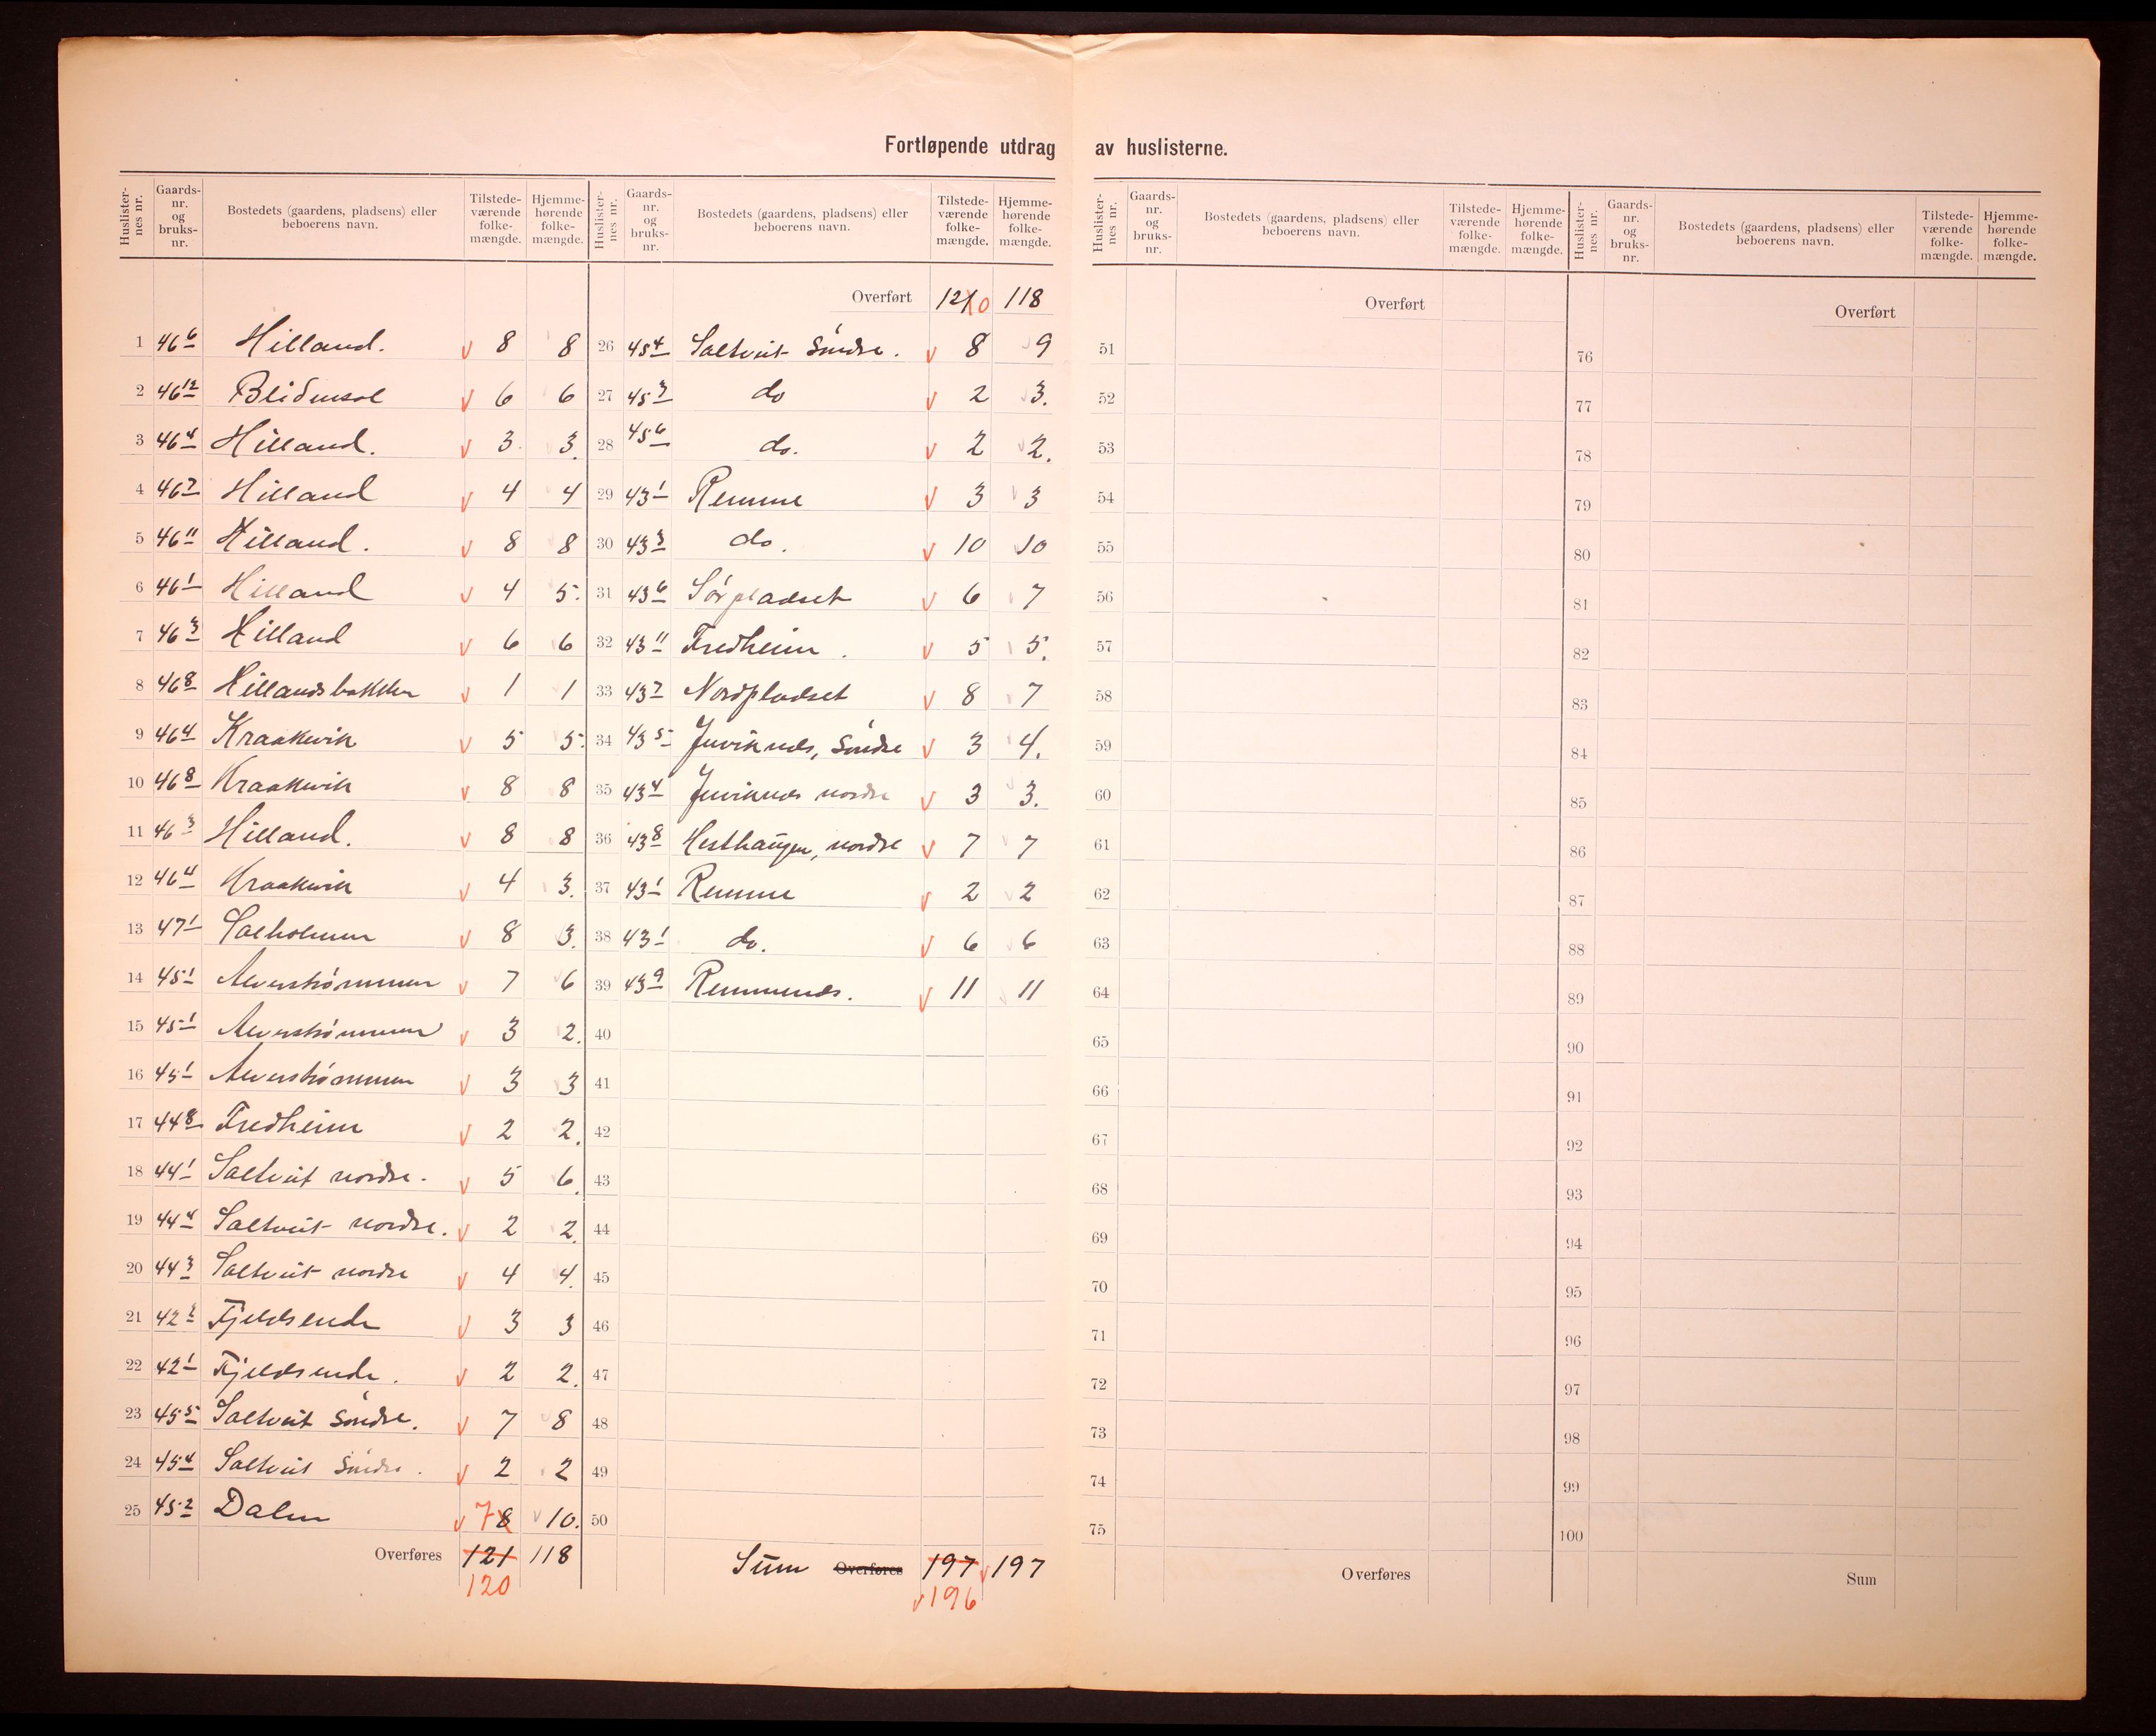 Fortløpende utdrag av huslisterne.
Huslister-nes nr. Gaards-nr. og bruks-nr. Bostedets (gaardens, pladsens) eller beboerens navn. Tilstede-værende folke-mængde. Hjemme-hørende folke-mængde.
1 46 6 Hilland. 8 8
2 46 12 Blidensol 6 6
3 46 4 Hilland. 3 3.
4 46 7 Hilland 4 4
5 46 11 Hilland. 8 8
6 46 1 Hilland 4 5.
7 46 3 Hilland 6 6
8 46 8 Hillandsbakken 1 1
9 46 4 Kraakvik 5 5.
10 46 8 Kraakvik 8 8
11 46 3 Hilland. 8 8
12 46 4 Kraakvik 4 3.
13 47 1 Salholmen 8 3.
14 45 1 Alverstrømmen 7 6
15 45 1 Alverstrømmen 3 2.
16 45 1 Alverstrømmen 3 3
17 44 8 Fredheim 2 2.
18 44 1 Saltveit nordre. 5 6.
19 44 4 Saltveit nordre. 2 2.
20 44 3 Saltveit nordre 4 4.
21 42 2 Fjeldsende 3 3
22 42 1 Fjeldsende. 2 2.
23 45 5 Saltveit Søndre. 7 8
24 45 4 Saltveit Søndre. 2 2
25 45 2 Dalen 7 8 10.
Overføres 121 118
120
Huslister-nes nr. Gaards-nr. og bruks-nr. Bostedets (gaardens, pladsens) eller beboerens navn. Tilstede-værende folke-mængde. Hjemme-hørende folke-mængde.
Overført 121 0 118
26 45 4 Saltveit Søndre. 8 9
27 45 3 do 2 3.
28 45 6 do. 2 2.
29 43 1 Remme 3 3
30 43 3 do. 10 10
31 43 6 Sørpladset 6 7
32 43 11 Fredheim. 5 5.
33 43 7 Nordpladset 8 7
34 43 5 Juviknes, Søndre 3 4.
35 43 4 Juviknes nordre 3 3.
36 43 8 Hesthaugen, nordre 7 7
37 43 1 Remme 2 2
38 43 1 do. 6 6
39 43 9 Remmenes. 11 11
40
41
42
43
44
45
46
47
48
49
50
Sum Overføres 197 197
196
Huslister-nes nr. Gaards-nr. og bruks-nr. Bostedets (gaardens, pladsens) eller beboerens navn. Tilstede-værende folke-mængde. Hjemme-hørende folke-mængde.
Overført
51
52
53
54
55
56
57
58
59
60
61
62
63
64
65
66
67
68
69
70
71
72
73
74
75
Overføres
Huslister-nes nr. Gaards-nr. og bruks-nr. Bostedets (gaardens, pladsens) eller beboerens navn. Tilstede-værende folke-mængde. Hjemme-hørende folke-mængde.
Overført
76
77
78
79
80
81
82
83
84
85
86
87
88
89
90
91
92
93
94
95
96
97
98
99
100
Sum